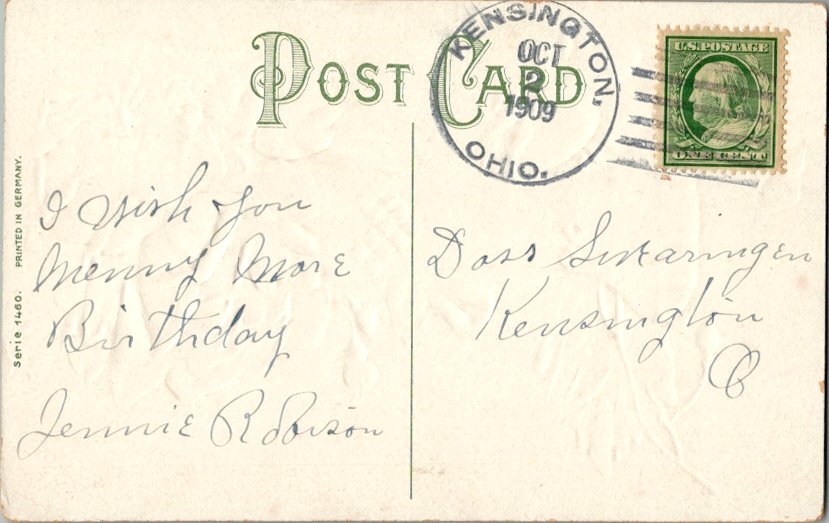 POST CARD
KENSINGTON,
OCT
2
1909
OHIO.
U.S. POSTAGE
ONE CENT
I Wish you
Menny More
Birthday
Jennie Robison
Doss Swearingen
Kensington
O
Serie 1460. PRINTED IN GERMANY.